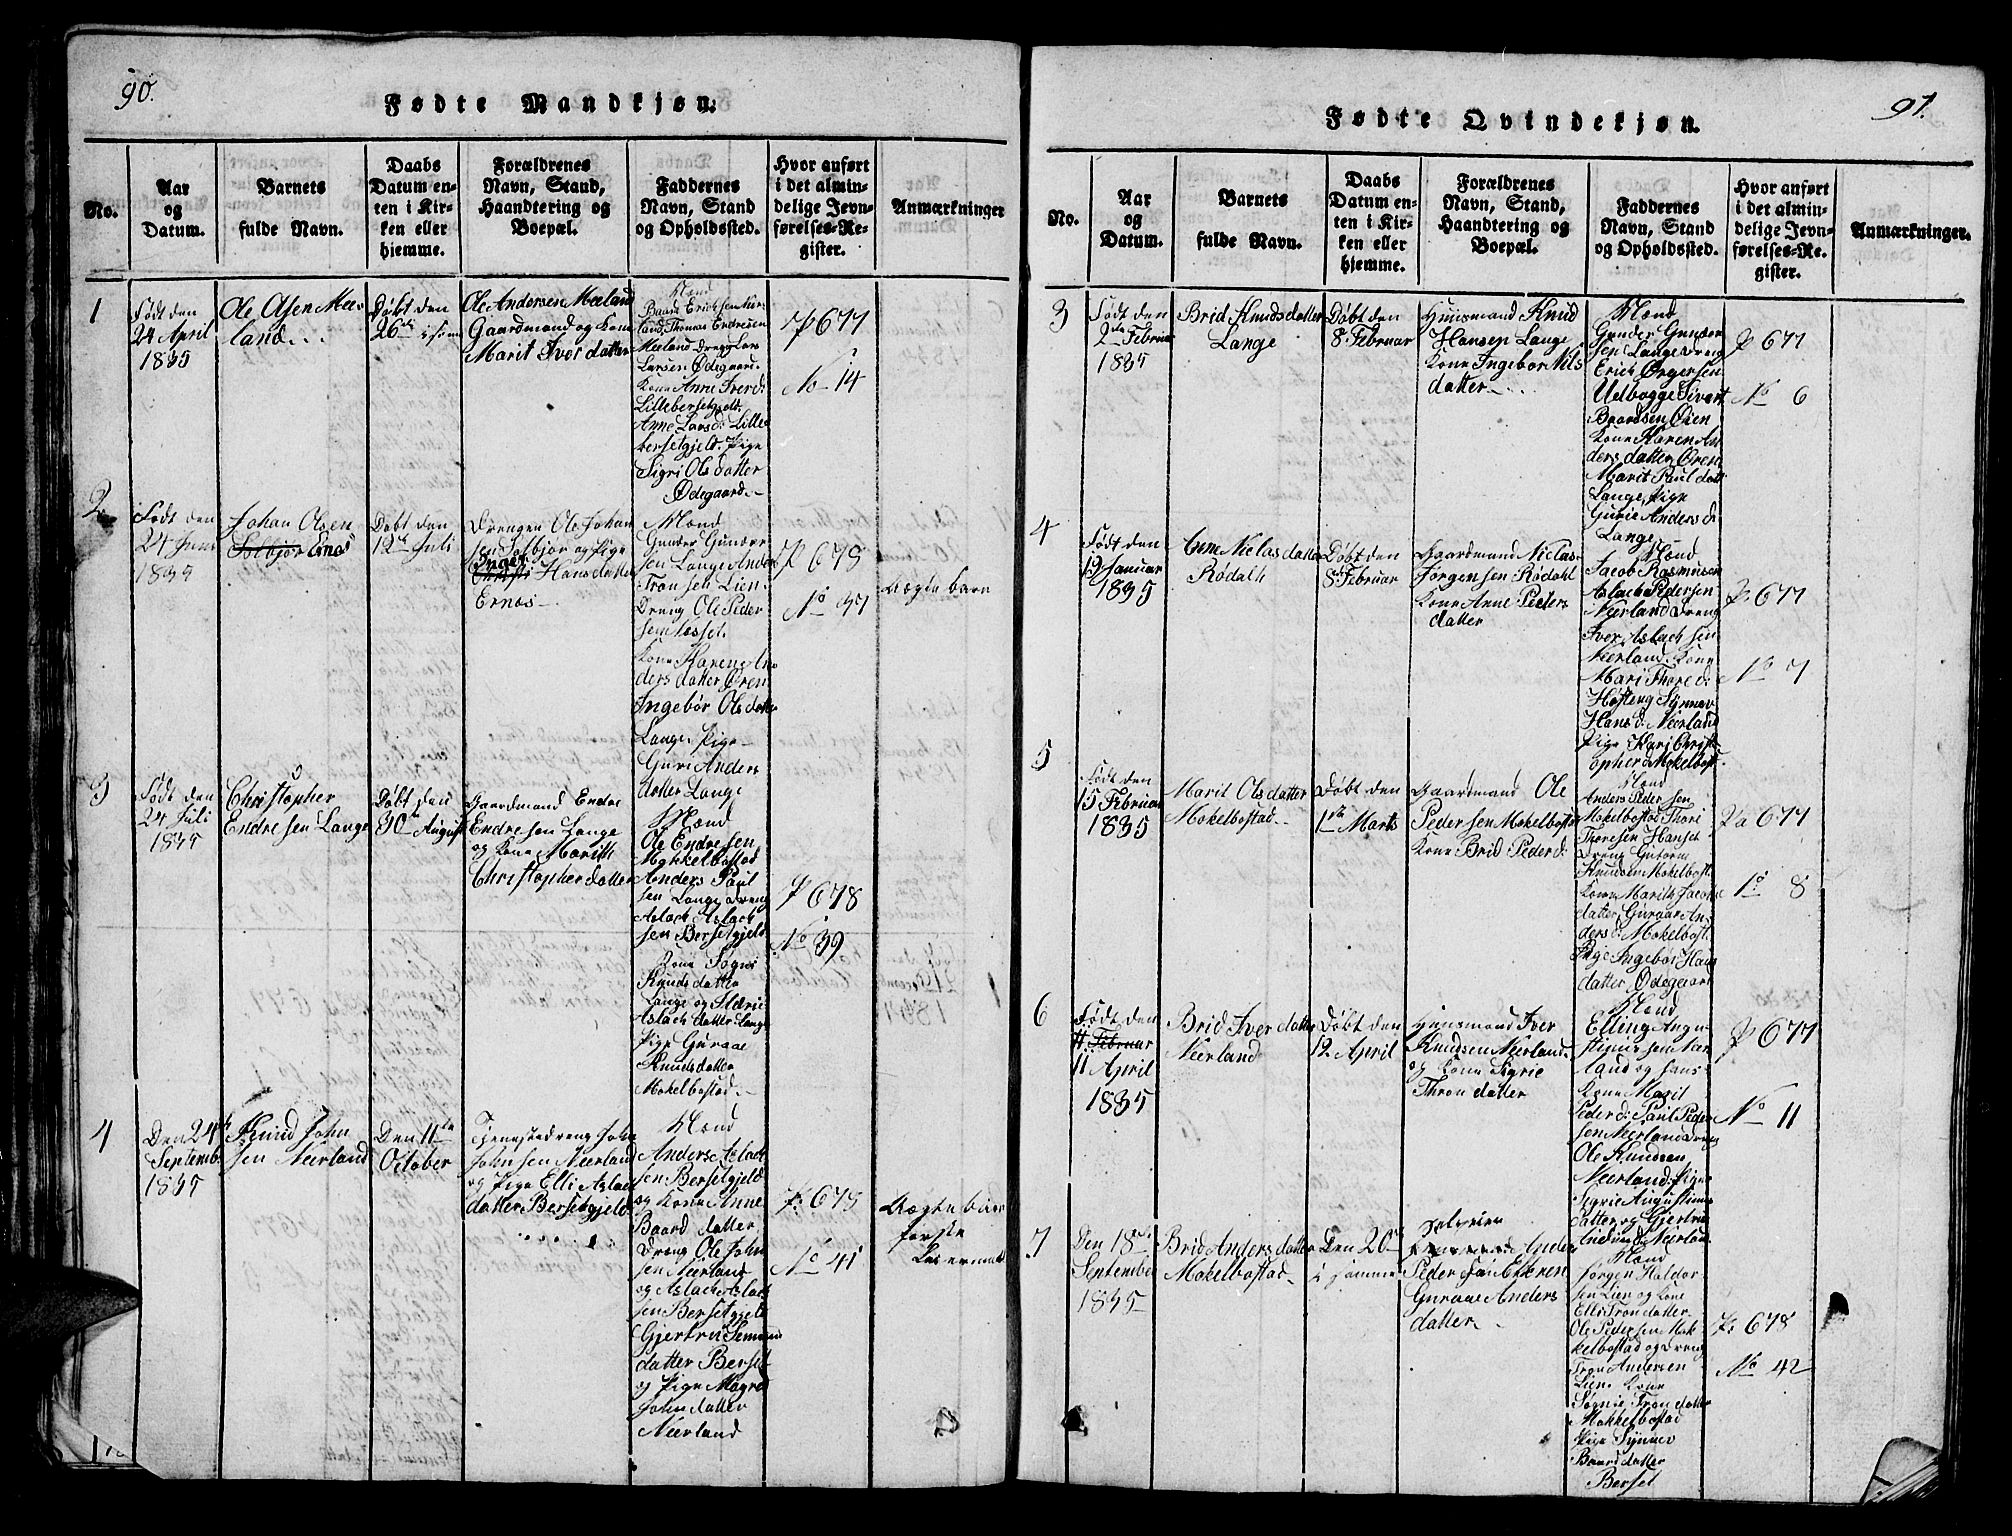 90.
Fødte Mandkjøn.
No.
Aar
og
Datum.
Barnets
fulde Navn.
Daabs
Datum en-
ten i Kir-
ken eller
hjemme.
Forældrenes
Navn, Stand,
Haandtering og
Boepæl.
Faddernes
Navn, Stand
og Opholdssted.
Hvor anført
i det almin-
delige Jevn-
førelses-Re-
gister.
Anmærkninger
1
Født den
24 April
1835
Ole Olsen Mee-
land
Døbt den
26de
Ole Andersen Meeland
Gaardmand og Kone
Marit Iversdatter
Mænd
Baard Erichsen
Thomas Endresen
Meeland Dreng Lars
Larsen Ødegaard
Kone Anne Iversd:
Lillebersetgjeld.
Anne Larsd: Lille
bersetgjeld. Pige
Sigri Olsdatter
Ødegaard
P 677
No 14
2
Født den
24 Juni
1835
Johan Olsen
Solbjør Ernæs
Døbt den
12te Juli
Drengen Ole Johan
sen Solbjør og Pige
Inger
Christi Hansdatter
Ernæs
Mænd
Gunder Gunder
sen Lange Ander
Tronsen Lien
Dreng Ole Peder
sen Næsset.
Kone Karen An
dersdatter Øren
Ingebor Olsdatter
Lange. Pige
Guri Anders
datter Lange
P 678
No 37
Uægte barn
3
Født den
24 Juli
1835
Christopher
Endresen Lange
Døbt den
30te August
Gaardmand Endre
Endresen Lange
og Kone Marith
Christopherdatter
Mænd
Ole Endresen
Mokkelbostad
Anders Paul
sen Lange Dreng
Aslach Aslach
sen Bersetgjeld
Kone Søgni
Knudsdatter
Lange og Marie
Aslachdatter Lange
Pige Guraae
Knudsdatter
Mokelbostad.
P 678
No 39
4
Den 24de
Septemb
1835
Knud John
sen Neerland
Den 11te
October
Tjenestedreng John
Johnsen Neerland
og Pige Elli Aslach
datter Bersetgjeld
Mænd
Anders Aslach
sen Bersetgjeld
og Kone Anne
Baarddatter
Dreng Ole John
sen Neerland
og Aslach Aslach
sen Bersetgjeld
Gjertru Semund
datter Berset
og Pige Magred
Johndatter
Neerland
P: 678
No 41
Uægte barn
første
Leiermaal
91.
Fødte Qvindekjøn.
No.
Aar
og
Datum.
Barnets
fulde Navn.
Daabs
Datum en-
ten i Kir-
ken eller
hjemme.
Forældrenes
Navn, Stand,
Haandtering og
Boepæl.
Faddernes
Navn, Stand
og Opholdssted.
Hvor anført
i det almin-
delige Jevn-
førelses-Re-
gister.
Anmærkninger.
3
Født den
2de Februar
1835
Brid Knudsdatter
Lange
Døbt den
8 Februar
Huusmand Knud
Hansen Lange
Kone Ingebor Nils
datter
Mænd
Gunder Gunder
sen Lange Dreng
Erich Ørgersen
Udbogge Sivert
Baardsen Øien
Kone Karen An
dersdatter Øren
Marit Pauldatt
Lange, Pige
Gurie Andersd:
Lange
P 677
No 6
4
Født den
19 Januar
1835
Anne Niclasdatter
Rødahl
Døbt den
8 Februar
Gaardmand Niclas
Jørgensen Rødahl
Kone Anne Peders
datter
Mænd
Jacob Rasmusen
Aslach Pedersen
Neerland Dreng
Iver Aslachsen
Neerland. Kone
Mari Thored:
Høsteng Synnøv
Hansd: Neerland
Pige Kari Christ
opherd: Mokelbost.
P 677
No 7
5
Født den
15 Februar
1835
Marit Olsdatter
Mokelbostad
Døbt den
1ste Marts
Gaardmand Ole
Pedersen Mokelbostad
Kone Brid Pederd:
Mænd
Anders Pedersen
Mokelbostad Thori
Thoresen Hanset
Dreng Gutorm
Knudsen Mokelbost.
Kone Marith Jacobs
datter, Guraae An
dersd: Mokelbost.
Pige Ingebor Hans
datter Ødegaard
Pa 677
No 8
6
Født den
11 Februar
11 April
1835
Brid Iverdatter
Neerland
Døbt den
12 April
Huusmand Iver
Knudsen Neerland
og Kone Sigrie
Throndatter
Mænd
Elling Augu
stinusen Neer
land og hans
Kone Marit
Pederd: Paul Peder
sen Neerland Dreng
Ole Knudsen
Neerland. Pige
Sigrie Augustinus
datter og Gjertru
Neerland
P 677
No 11
7
Den 18de
September
1835
Brid Andersdatter
Mokelbostad
Den 20de
i samme
Ander
Pedersen
Guraae Anders
datter
Mænd
Jørgen Haldor
sen Lien og Kone
Elli Trondatter
Ole Pedersen Mok
kelbostad og Dreng
Tron Andersen
Lien. Kone
Søgnie Trondatter
Mokkelbostad
Pige Synnev
Baarddatter
Berset
P: 678
No 42